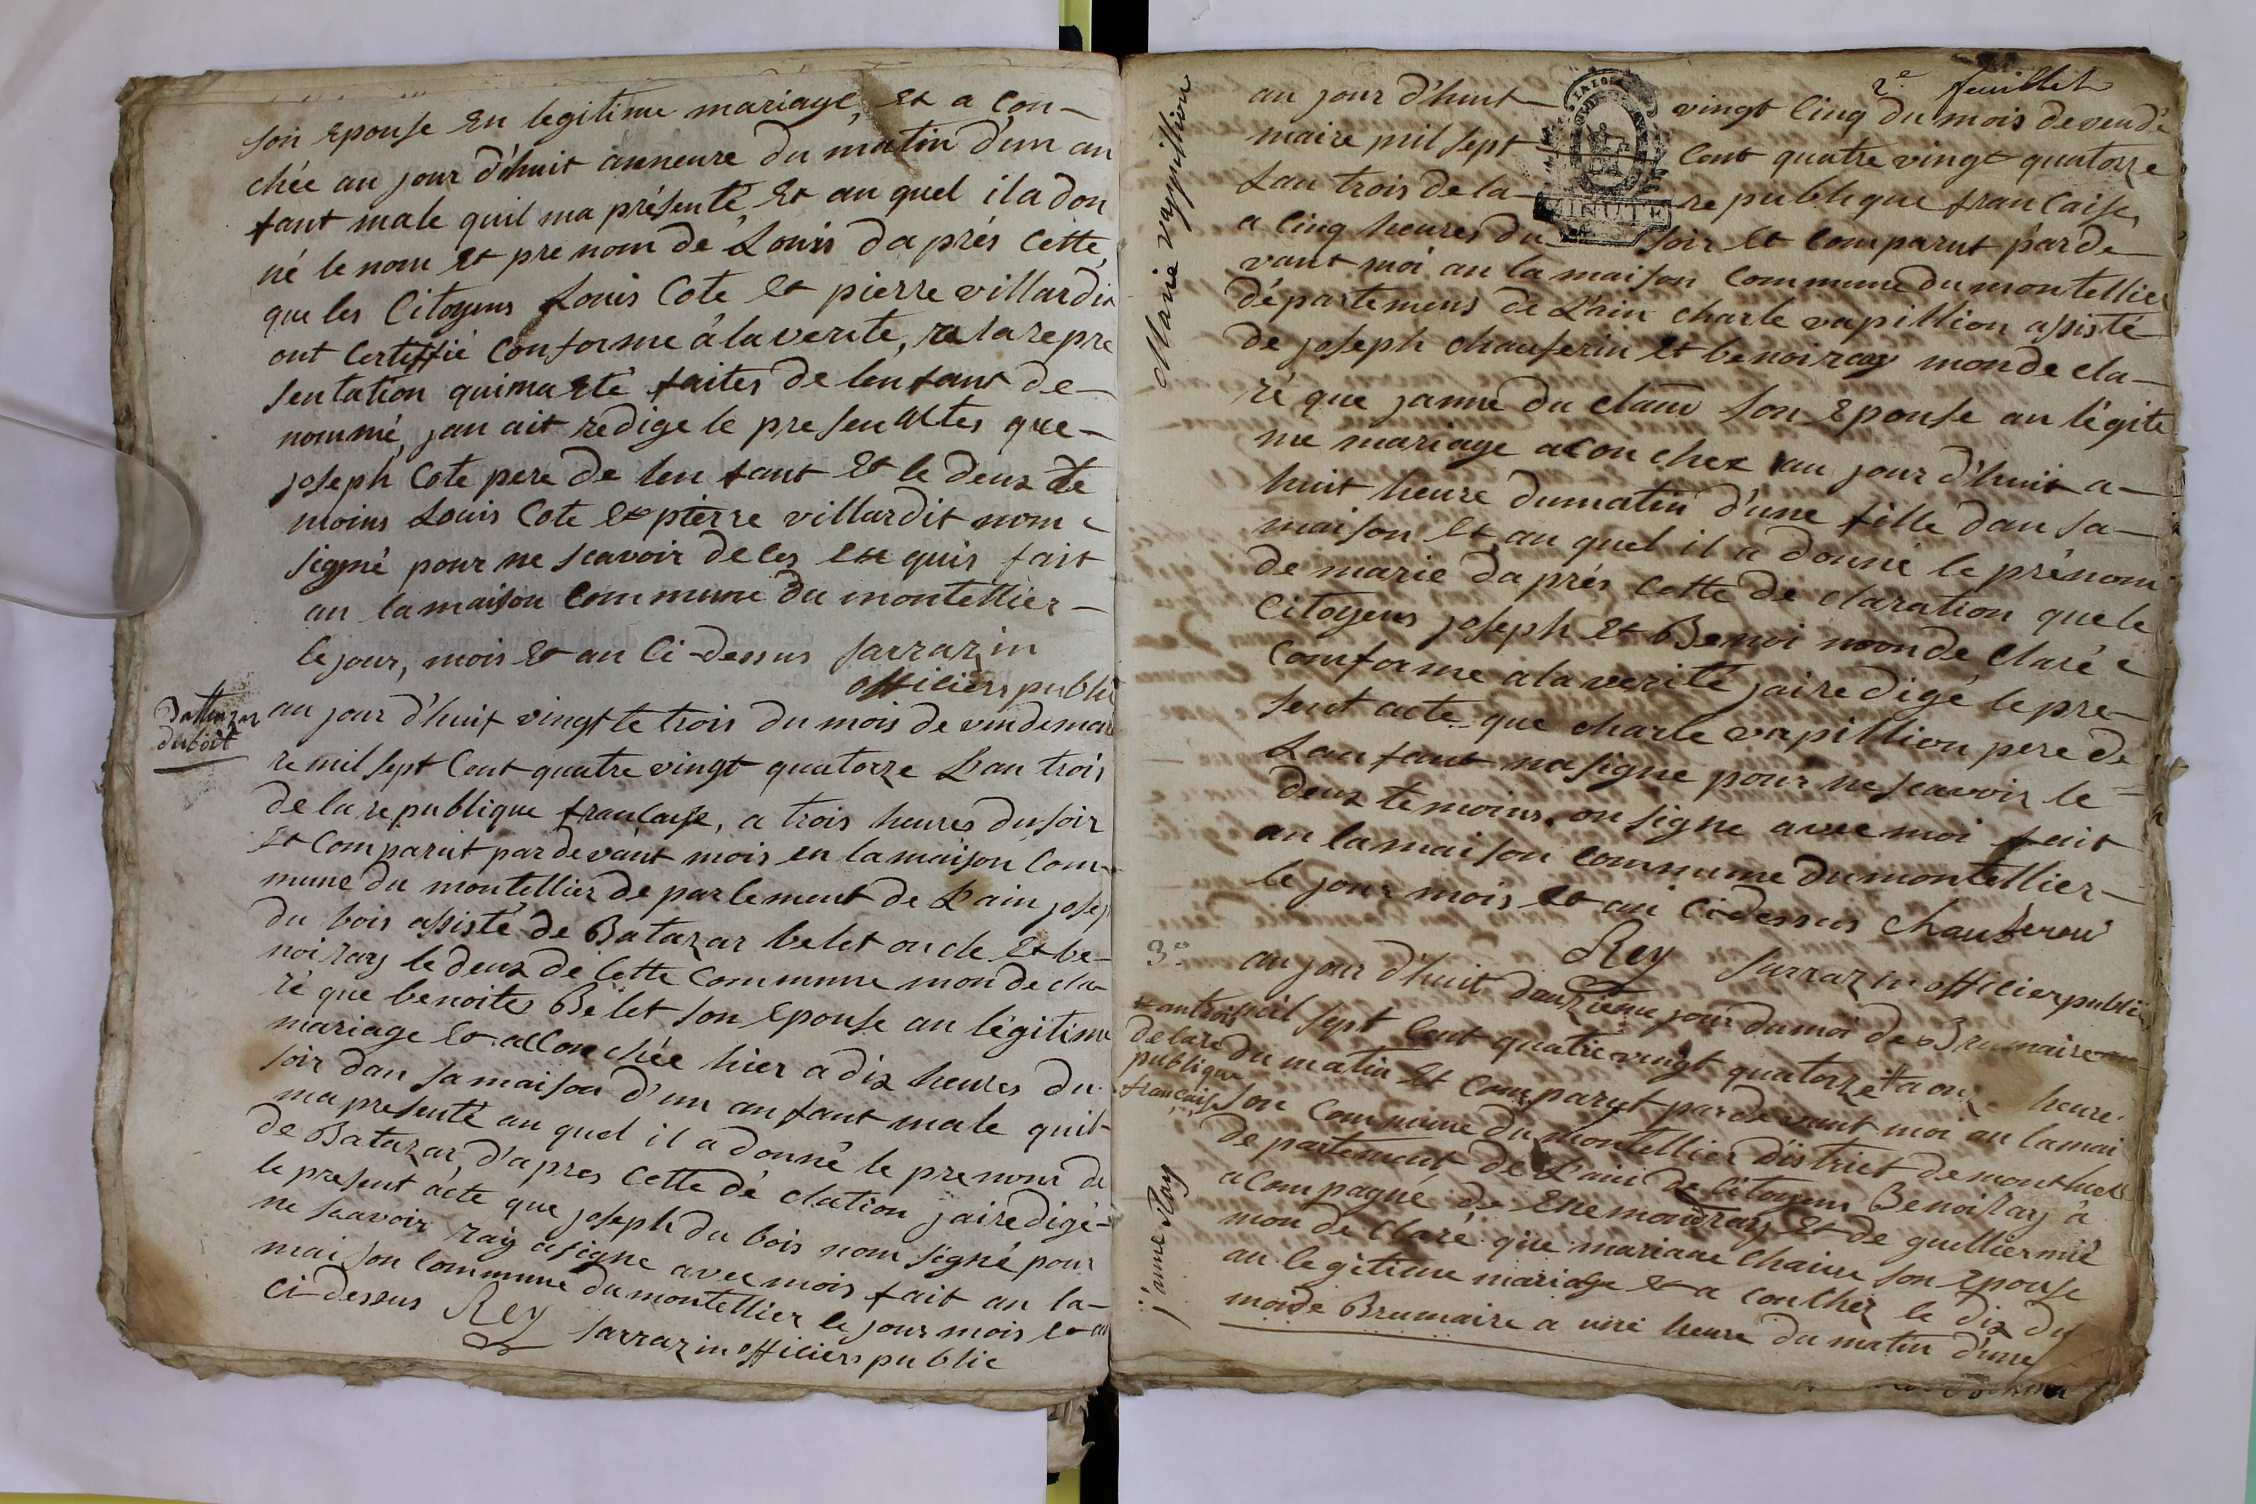 son epouse en legitime mariage, et a Cou-
chée au jour d'huit anneure du matin d'un an
fant male quil ma présenté, et au quel il a don
né le nom et prenom de Louis daprés Cette,
que les Citoyens Louis Cote et pierre villardit
ont Certeffié Conforme á la verite, ra la repre
sentation quima eté faites de lenfant de-
nommé, jan ait redige le presen actes que-
joseph Cote pere de len fant et le deux te
moins Louis Cote et pierre villardit nom-
signé pour ne scavoir de ces en quis fait
an la maison Commune du montellier-
le jour, mois et an Ci-dessus sarrazin
officiers public
Baltazar
dubois
au jour d'huit vingt te trois du mois de vindemai
re mil sept Cent quatre vingt quatorze L'an trois
de la republique francaise, a trois heures du soir
et Comparut par devant mois en la maison Com-
mune du montellier de parlement de L'ain josep
du bois assisté de Batazar belet oncle et be-
noi ray le deux de Cette Commune mon decla-
ré que benoites Belet son epouse an légitime
mariage et accou chée hier a dix heures du
soir dan sa maison d'un an fant male quil-
ma presenté au quel il a donné le prenom de
de Batazar, d'apres Cette dé clation jairedigé-
le present acte que joseph du bois nom signé pour
ne scavoir ray a signe avec mois fait an la-
maison Commune du montellier le jour mois et an
Ci-dessus Rey sarrazin officiers public
2e feuillet
Marie vappillion
au jour d'huit vingt Cinq du mois de vendé
maire mil sept Cent quatre vingt quatorze
Lan trois de la republique francaise,
a Cinq heures du soir et Comparut par de-
vant moi an la maison Commune du montellier
départemens de L'ain charle vapillion assisté
de joseph chauferin et benoi ray mon de cla-
ré que janne du clau son epouse an légite
me mariage acou chez au jour d'huit a-
huit heure dumatin d'une fille dan sa-
maison et au quel il a donné le prénom
de marie daprés Cette de claration que le
Citoyens joseph et Benoi mon de claré-
Comforme a la verité jairedigé le pre-
sent acte que charle vapillion pere de
Lanfant na signe pour ne scavoir le-
deux temoins on signe avec moi fait
an la maison Commune du montellier-
le jour mois et an Cidessus chauferin
Rey sarrazin officier public
LA LOI
MINUTE
3e
au jour d'huit douzieme jour du moi de Brumaire
mil sept Cent quatre vingt quatorze # a onze heure
# an trois
de la re
publique
française
du matin et Comparut par de vant moi an la mai
son Commune du montellier district de montluel
departement de L'ain le Citoyen Benoi Ray á
acompagné de Enemond ray et de guilliermie
mon de claré que mariane Chaine son epouse
an legitime mariage et a Couchez le dix du
moi de Brumaire a une heure du matin d'une
janne Ray